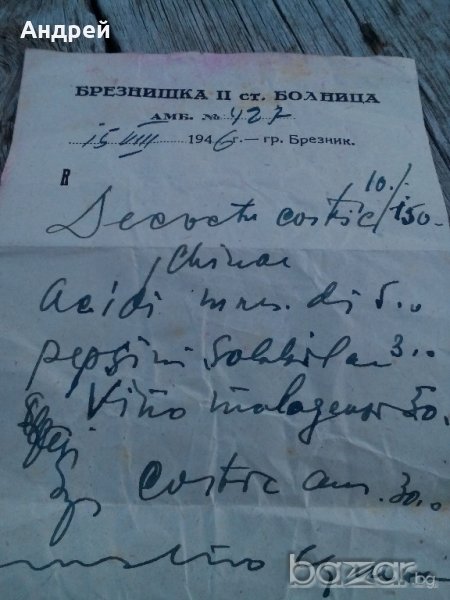 Андрей
БРЕЗНИШКА II ст. БОЛНИЦА
АМБ. № 427
15 VIII 1946 г. — гр. Брезник.
R
10./.
Decoctu cortic/150.-
Chinae
Acidi mur. di 5...
pepsini 3...
Vino malagensi 50.
cortic aur. 30...
bazar.bg